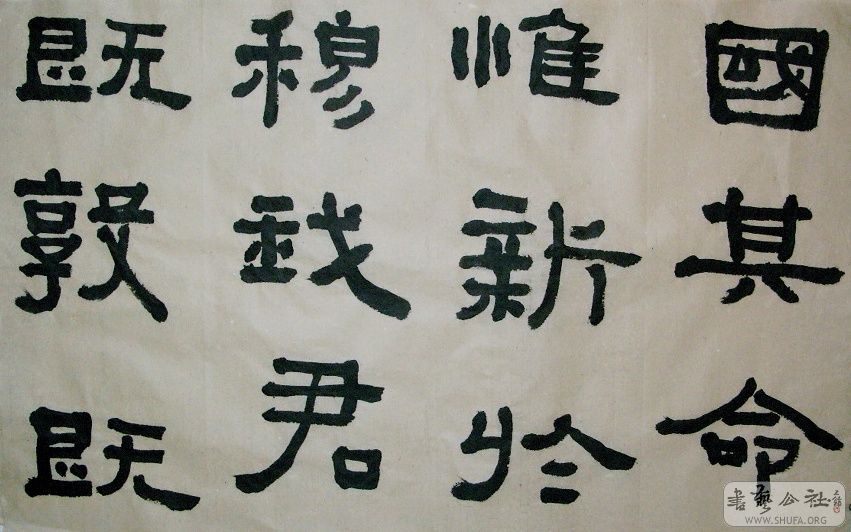 國其命
惟新於
穆我君
既敦既
書藝公社
WWW.SHUFA.ORG